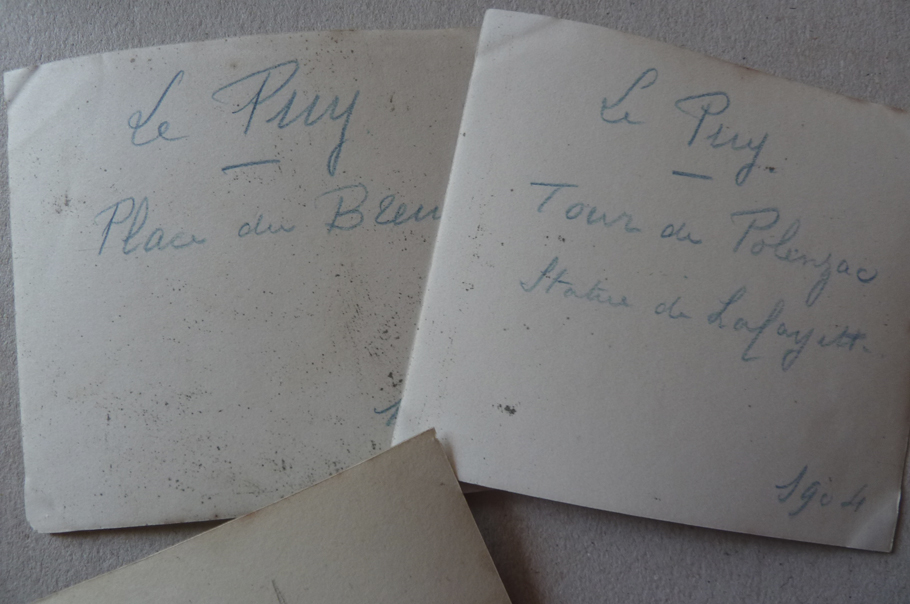 Le Puy
Place du Breu
Le Puy
Tour de Polenzac
Statue de Lafayette
1904